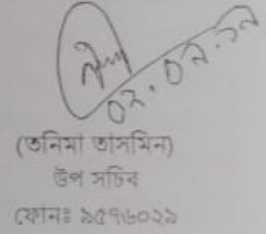 ০২.০৯.১৯
(তনিমা তাসমিন)
উপ সচিব
ফোনঃ ৯৫৭৬০২৯